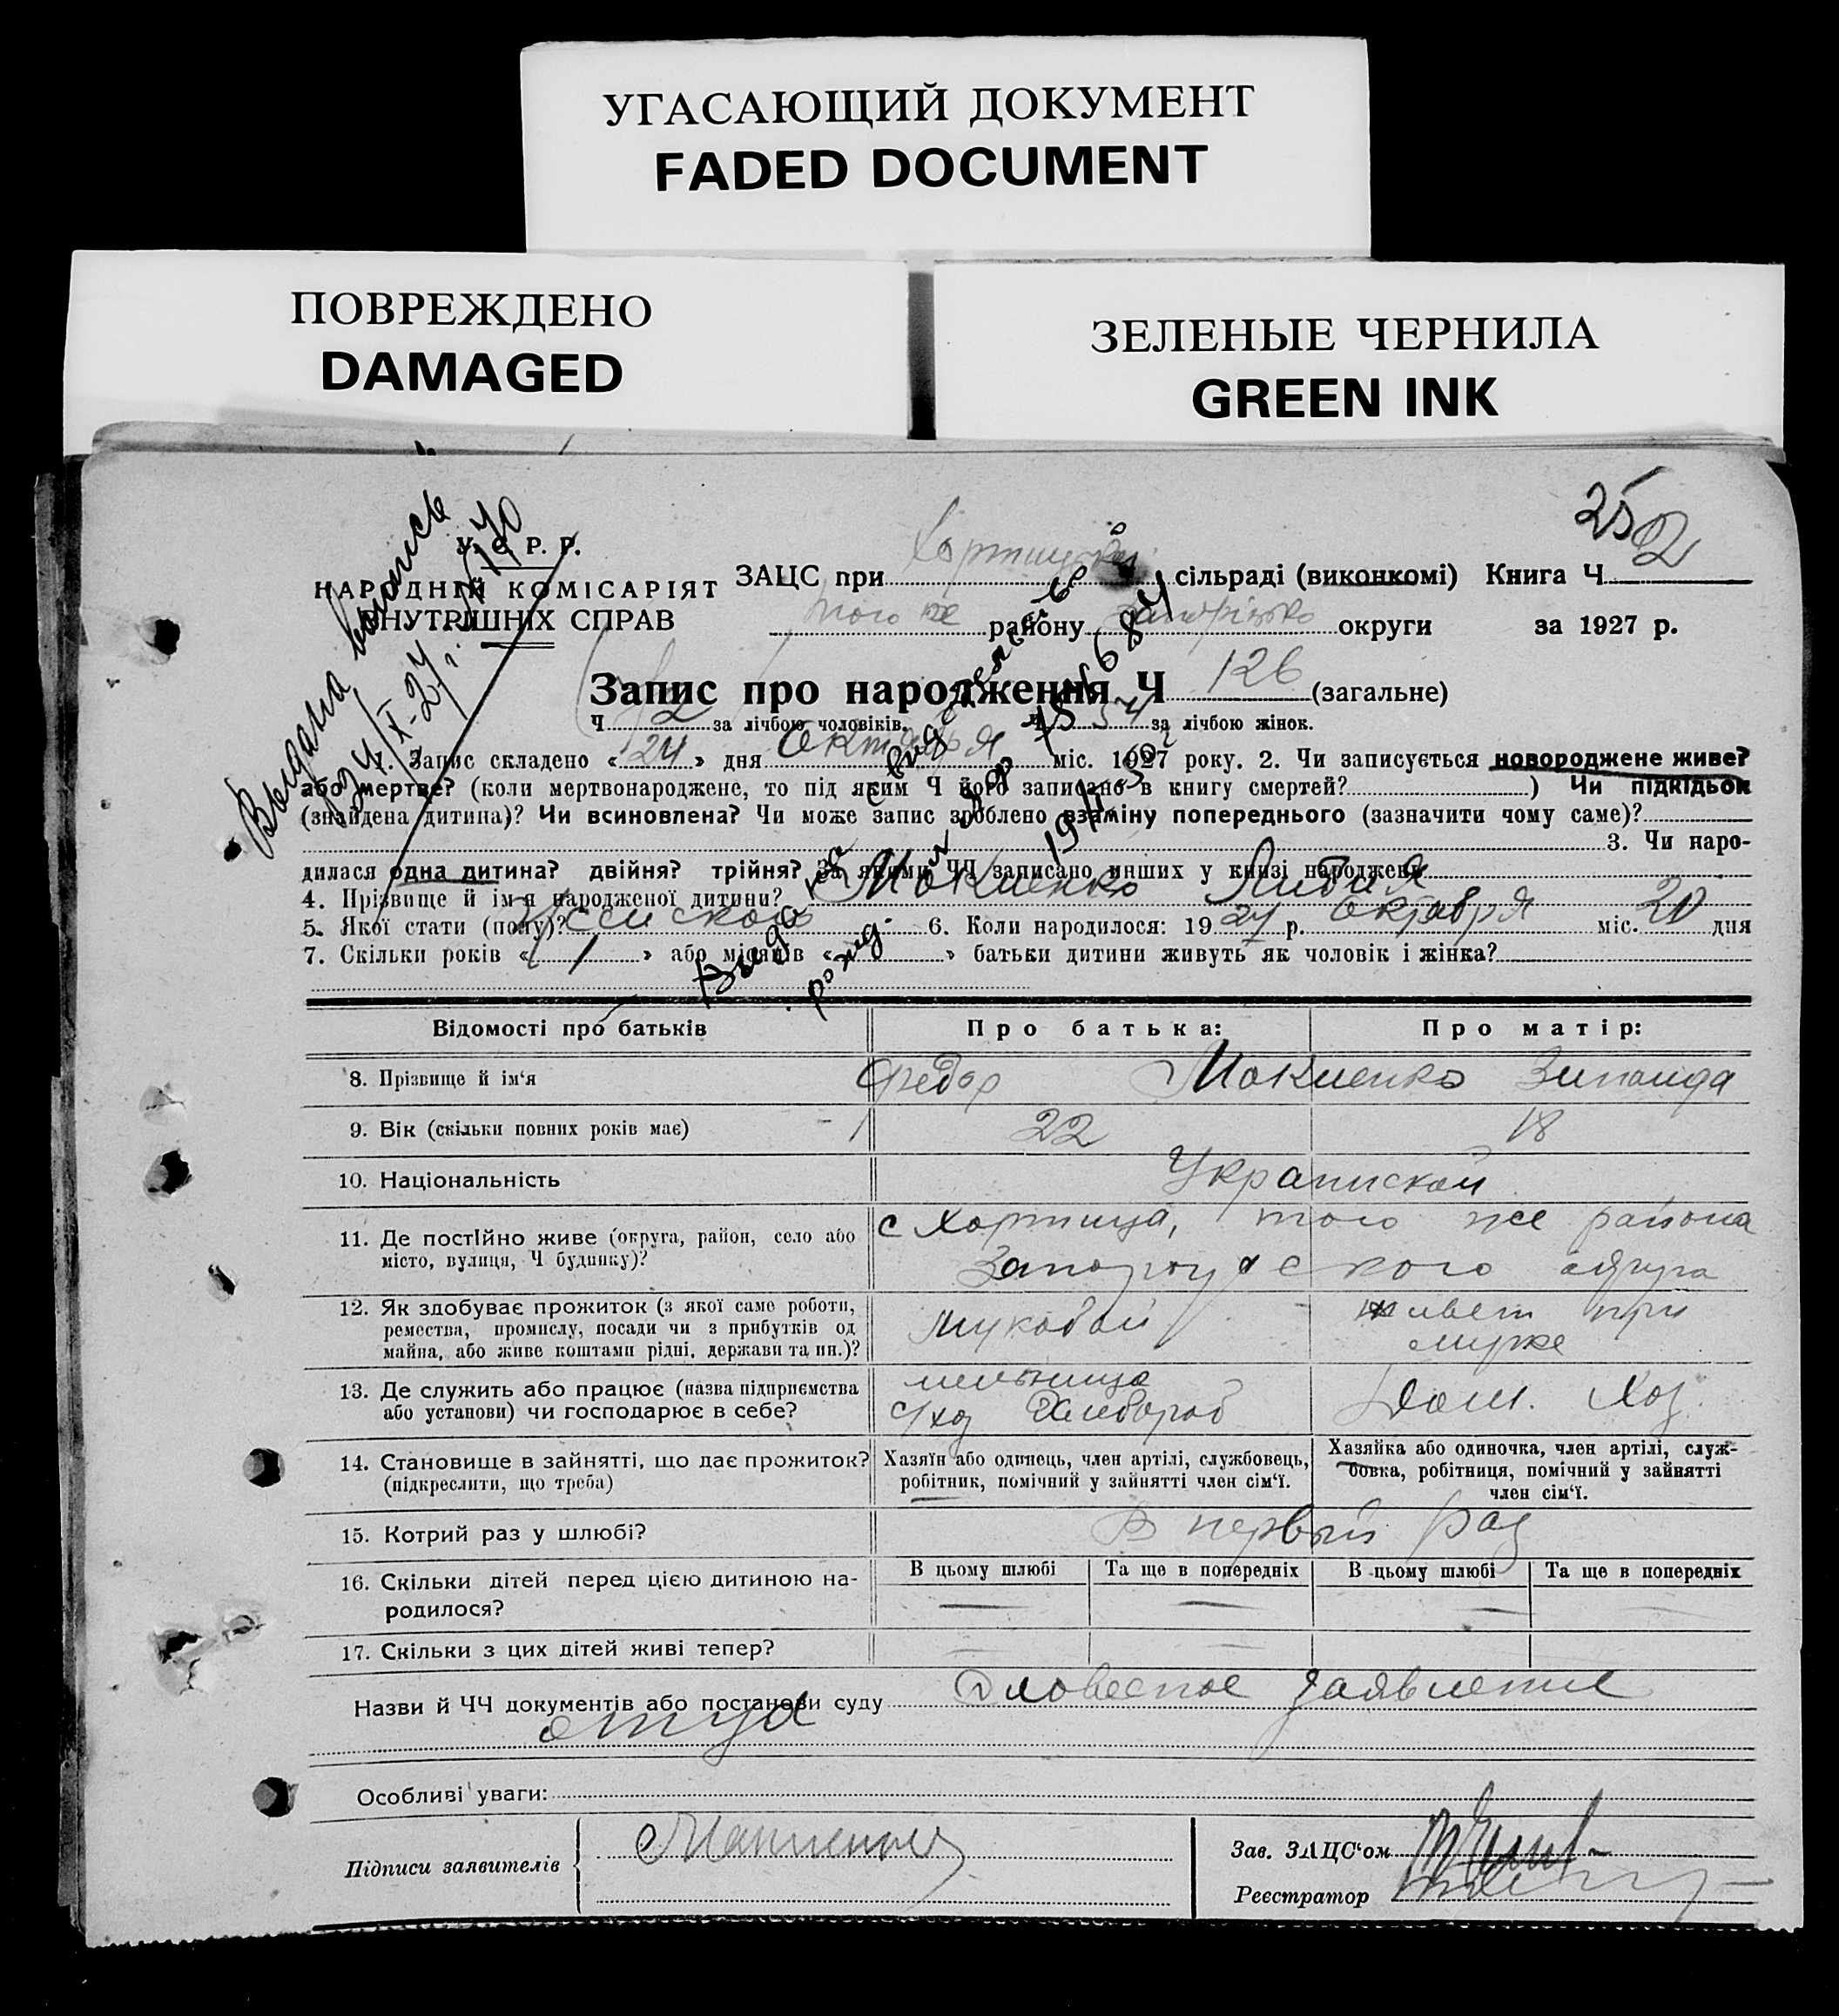 УГАСАЮЩИЙ ДОКУМЕНТ
FADED DOCUMENT
ПОВРЕЖДЕНО
DAMAGED
ЗЕЛЕНЫЕ ЧЕРНИЛА
GREEN INK
252
Выдана выпись
У. С. Р. Р.
НАРОДНІЙ КОМІСАРІЯТ
ВНУТРІШНІХ СПРАВ
ЗАЦС при сільраді (виконкомі) Книга Ч
того же району округи за 1927 р.
Запис про народження Ч 126 (загальне)
Ч за лічбою чоловіків. Ч 54 за лічбою жінок.
1. Запис складено « 24 » дня Октября міс. 1927 року. 2. Чи записується новороджене живе?
або мертве? (коли мертвонароджене, то під яким Ч його записано в книгу смертей? ) Чи підкідьок
(знайдена дитина)? Чи всиновлена? Чи може запис зроблено взаміну попереднього (зазначити чому саме)?
3. Чи наро-
дилася одна дитина? двійня? трійня? За якими ЧЧ записано инших у книзі народжень
4. Прізвище й ім'я народженої дитини? Мокиенко Лидия
5. Якої стати (полу)? Женской 6. Коли народилося: 19 27 р. Октября міс. 20 дня
7. Скільки років « 1 » або місяців « » батьки дитини живуть як чоловік і жінка?
Відомості про батьків Про батька: Про матір:
8. Прізвище й ім'я Федор Мокиенко Зинаида
9. Вік (скільки повних років має) 22 18
10. Національність
11. Де постійно живе (округа, район, село або місто, вулиця, Ч будинку)?
с Хортица, того же района
округа
12. Як здобуває прожиток (з якої саме роботи,
ремества, промислу, посади чи з прибутків од
майна, або живе коштами рідні, держави та ин.)?
живет при
муже
13. Де служить або працює (назва підприємства
або установи) чи господарює в себе?
мельница
Дом. Хоз.
14. Становище в зайнятті, що дає прожиток?
(підкреслити, що треба)
Хазяїн або одинець, член артілі, службовець,
робітник, помічний у зайнятті член сім'ї.
Хазяйка або одиночка, член артілі, служ-
бовка, робітниця, помічний у зайнятті
член сім'ї.
15. Котрий раз у шлюбі? В первый раз
16. Скільки дітей перед цією дитиною на-
родилося?
В цьому шлюбі Та ще в попередніх В цьому шлюбі Та ще в попередніх
17. Скільки з цих дітей живі тепер?
Назви й ЧЧ документів або постанови суду Словесное заявление
отца
Особливі уваги:
Підписи заявителів
Зав. ЗАЦС'ом
Реєстратор